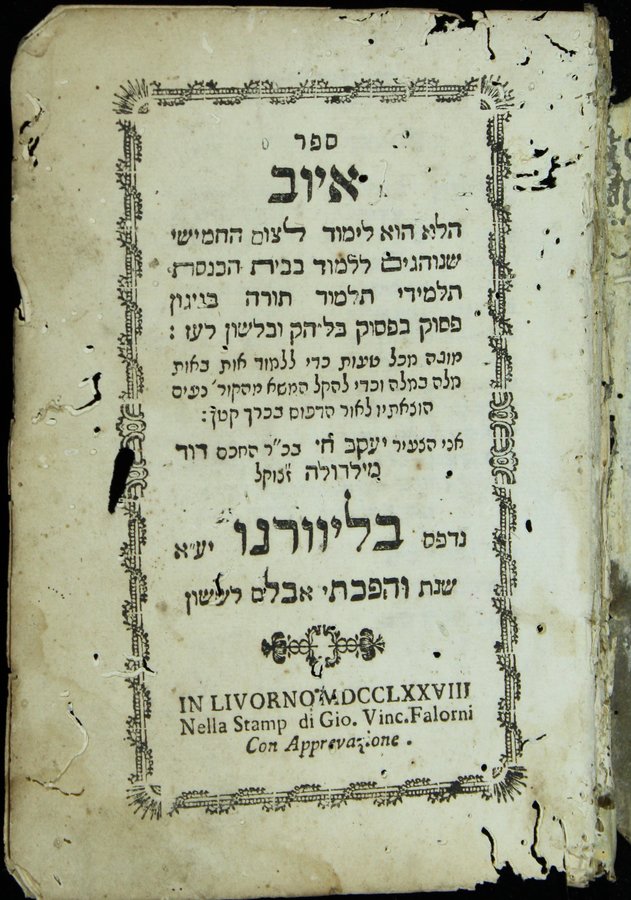 ספר
איוב
הלא הוא לימוד לצום החמישי
שנוהגים ללמוד בבית הכנסת
תלמידי תלמוד תורה בניגון
פסוק בפסוק בל״הק ובלשון לעז :
מוגה מכל טעות כדי ללמוד אות באות
מלה במלה וכדי להקל המשא מהקור׳ נעים
הוצאתיו לאור הדפוס בכרך קטן :
אני הצעיר יעקב חי בכ״ר החכם דוד
מילדולה זנוקל
נדפס בליוורנו יע״א
שנת והפכתי אבלם לששון
IN LIVORNO MDCCLXXVIII
Nella Stamp di Gio. Vinc. Falorni
Con Apprevazione .